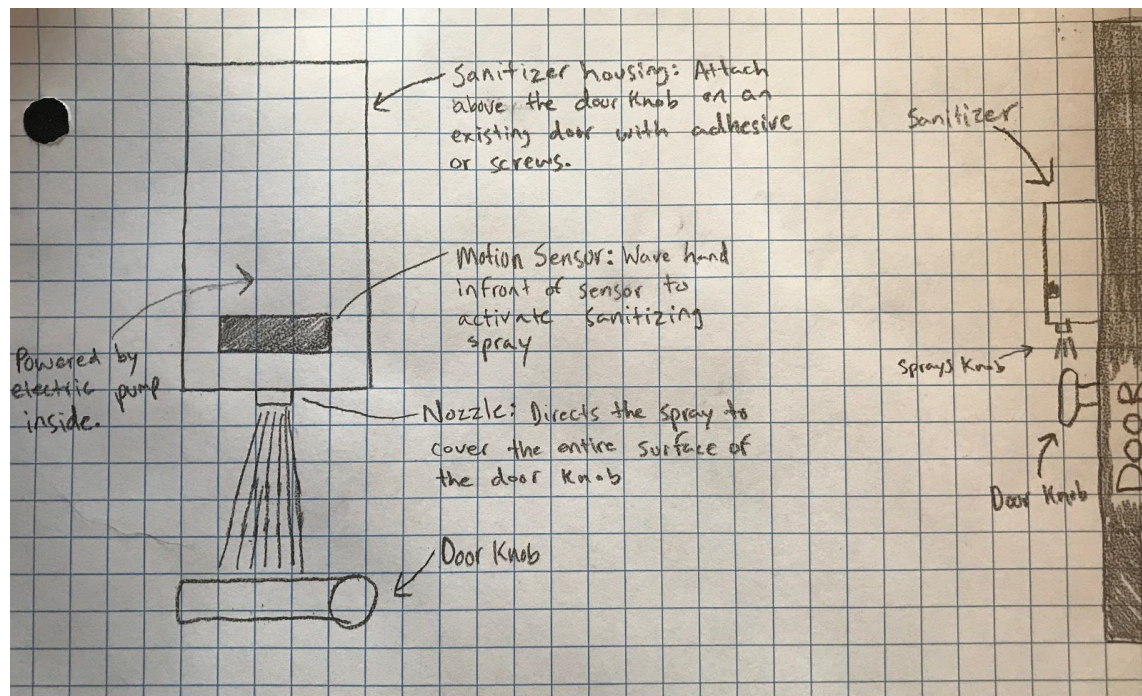 Sanitizer housing: Attach
above the door Knob on an
existing door with adhesive
or screws.
Motion Sensor: Wave hand
infront of sensor to
activate sanitizing
spray
Powered by
electric pump
inside.
Nozzle: Directs the spray to
cover the entire surface of
the door Knob
Door Knob
Sanitizer
Sprays Knob
Door Knob
DOOR